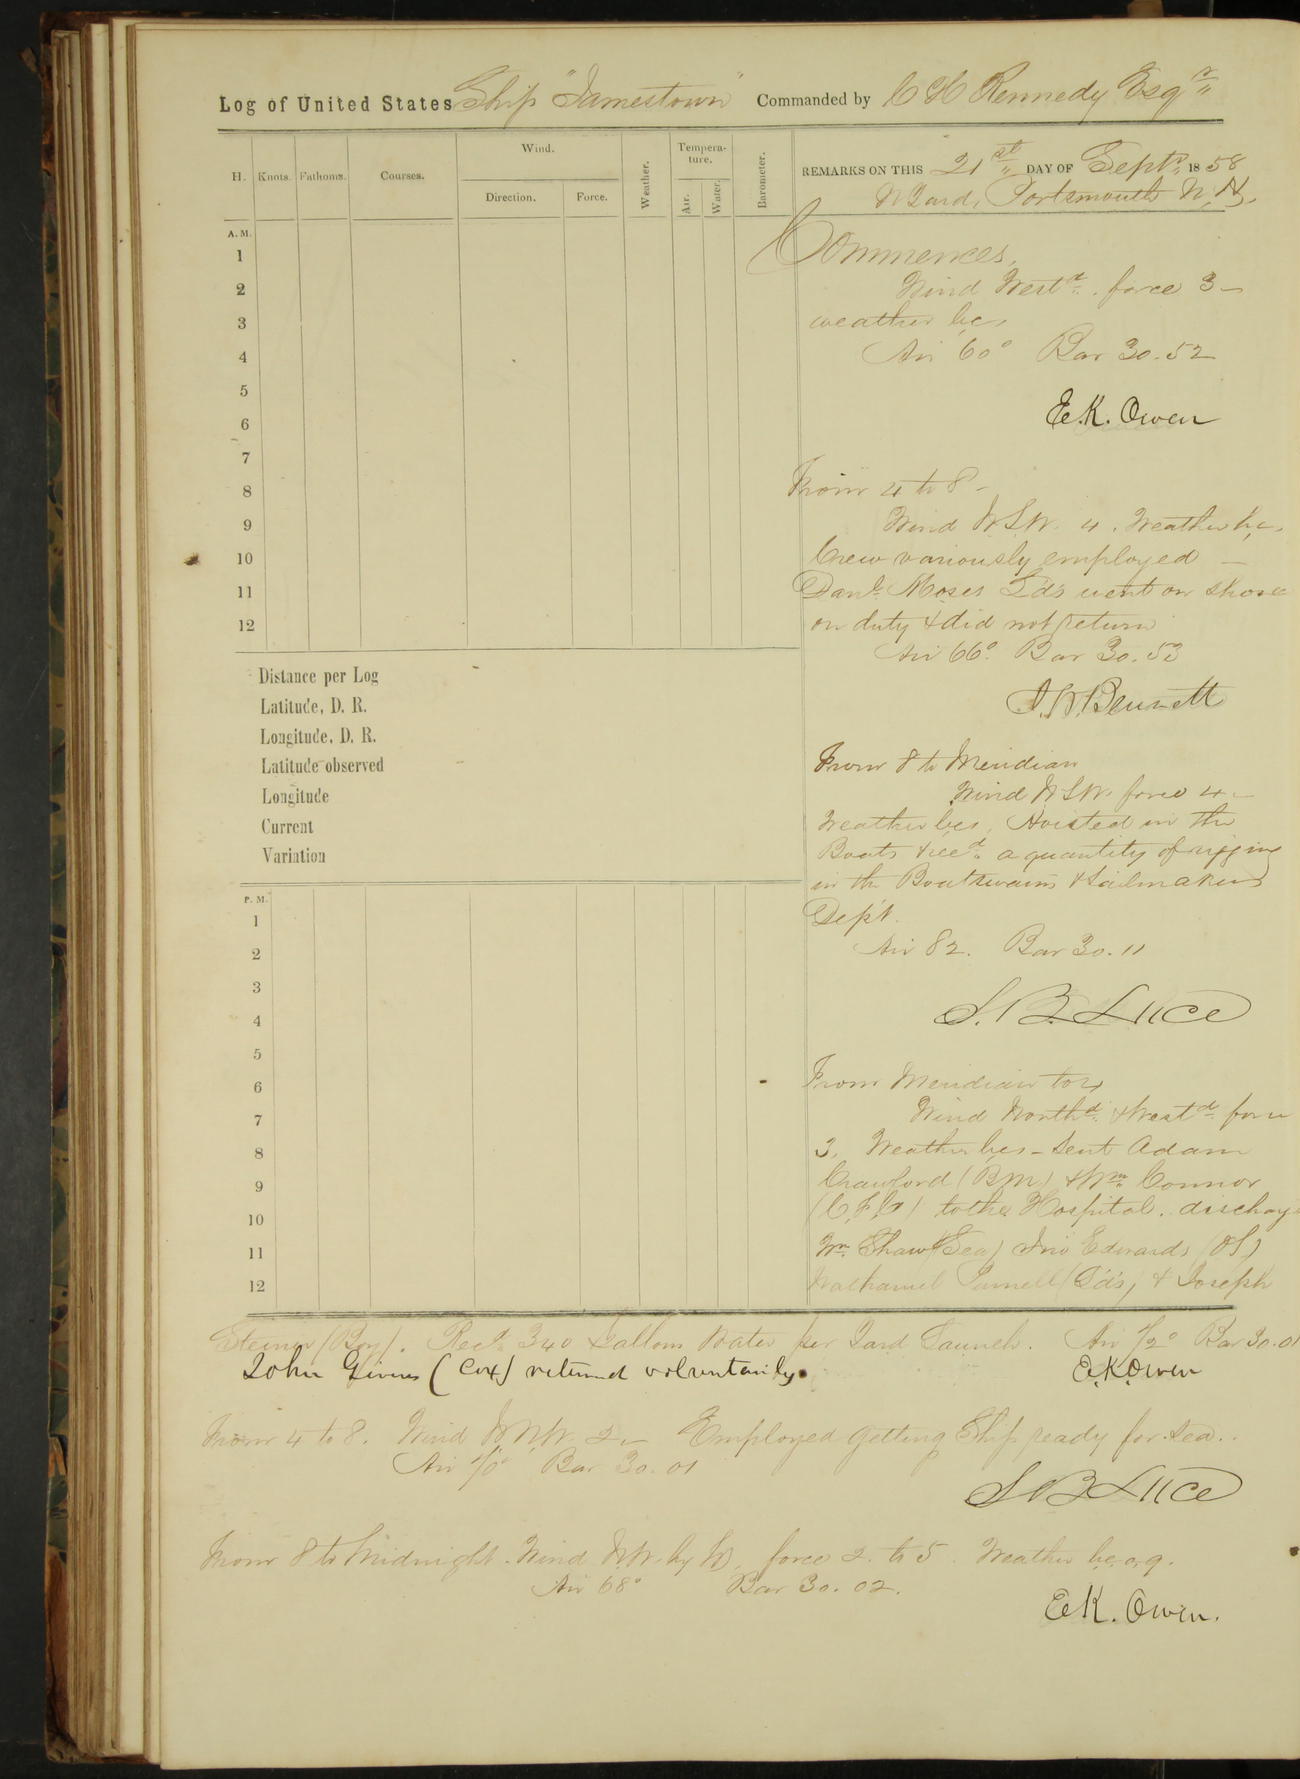 Log of United States Ship "Jamestown" Commanded by C H Kennedy Esqr
H. Knots. Fathoms. Courses. Wind. Direction. Force. Weather. Tempera-ture. Air. Water. Barometer.
REMARKS ON THIS 21st DAY OF Septr 1858
N Yard, Portsmouth N.H.
A.M.
1
2
3
4
5
6
7
8
9
10
11
12
Commences,
Wind Westd. force 3 —
weather bc,
Air 60° Bar 30.52
E.K. Owen
From 4 to 8 —
Wind W.S.W. 4. Weather bc,
Crew variously employed —
Danl. Moses Lds went on shore
on duty & did not return
Air 66° Bar 30.53
J.W. Bennett
From 8 to Meridian
Wind W.S.W. force 4 —
Weather bc, Hoisted in the
Boats & recd a quantity of rigging
in the Boatswains & Sailmakers
Dept.
Air 82. Bar 30.11
S.B. Luce
From Meridian to 4
Wind Northd. & Westd. force
3. Weather bc, — Sent Adam
Crawford (BM) & Wm Connor
to the Hospital.
Wm Shaw (Sea) Jno Edwards (OS)
Nathaniel (Lds) & Joseph
Steiner (Boy). Recd. 340 Gallons Water per Yard Launch. Air 72° Bar 30.01
John Givins (Cox) returned voluntarily. E.K. Owen
From 4 to 8. Wind W.N.W. 2 — Employed getting Ship ready for Sea.
Air 70° Bar 30.01
S B Luce
From 8 to Midnight. Wind N.W. by W. force 2 to 5. Weather b.c.o.q.
Air 68° Bar 30.02.
E.K. Owen.
Distance per Log
Latitude, D. R.
Longitude, D. R.
Latitude observed
Longitude
Current
Variation
P.M.
1
2
3
4
5
6
7
8
9
10
11
12